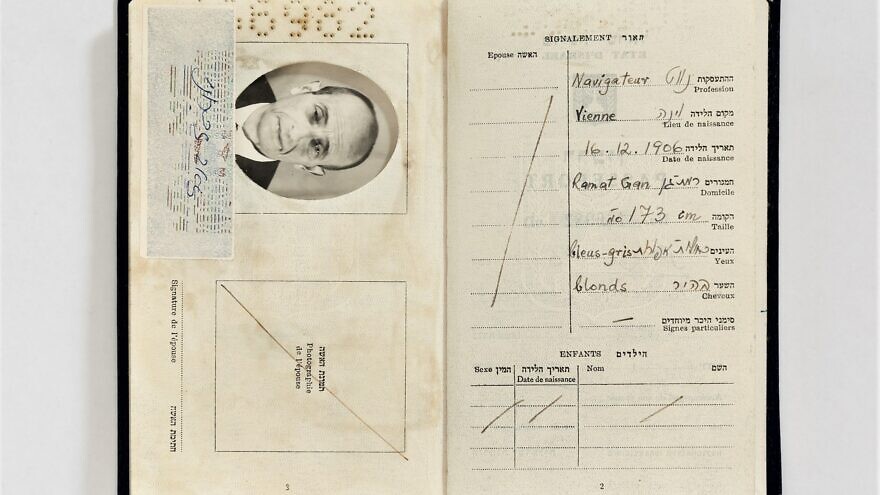 תמונת האשה
Photographie
de l'épouse
Signature de l'épouse חתימת האשה
3
SIGNALEMENT תאור
Epouse האשה
Navigateur נווט ההתעסקות
Profession
Vienne וינה מקום הלידה
Lieu de naissance
16.12.1906 תאריך הלידה
Date de naissance
Ramat Gan רמת גן המגורים
Domicile
173 cm הקומה
Taille
bleus-gris העינים
Yeux
blonds בהיר השער
Cheveux
— סימני היכר מיוחדים
Signes particuliers
ENFANTS הילדים
Sexe המין תאריך הלידה Nom השם
Date de naissance
2